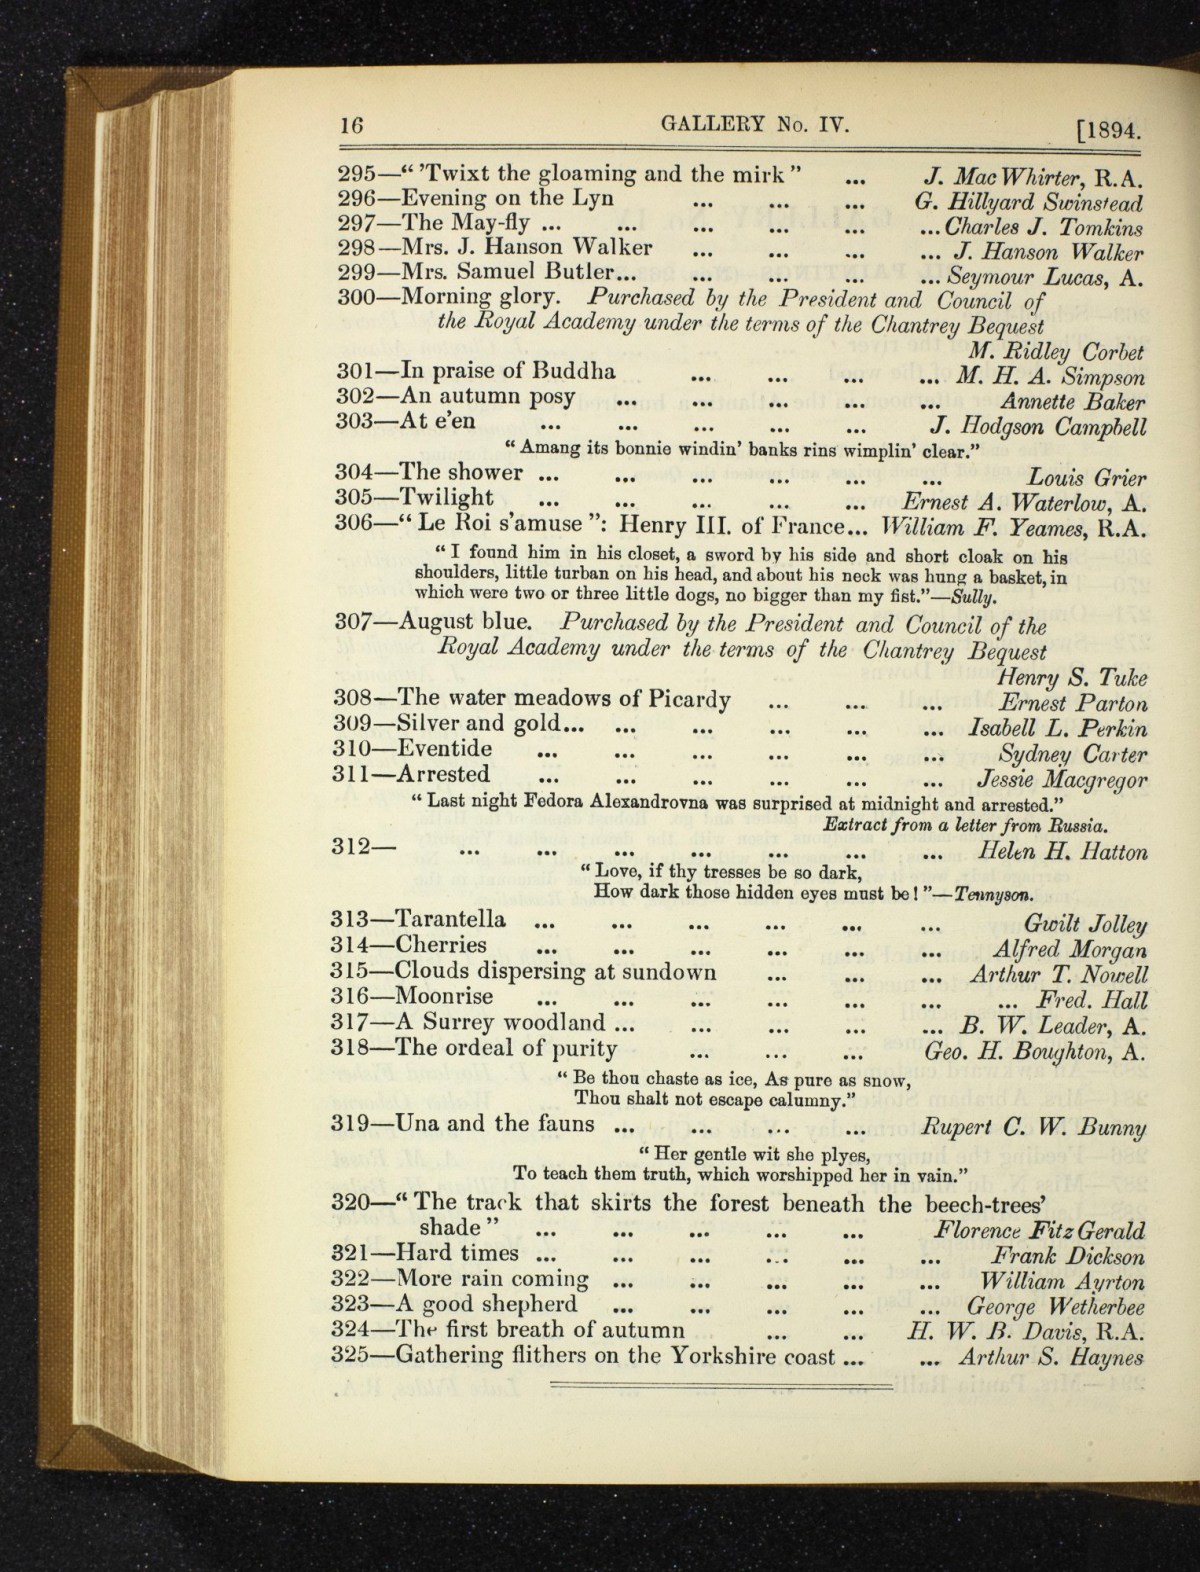 16 GALLERY No. IV. [1894.
295—“ ’Twixt the gloaming and the mirk” ... J. MacWhirter, R.A.
296—Evening on the Lyn ... ... ... G. Hillyard Swinstead
297—The May-fly ... ... ... ... ... ... Charles J. Tomkins
298—Mrs. J. Hanson Walker ... ... ... ... J. Hanson Walker
299—Mrs. Samuel Butler... ... ... ... ... Seymour Lucas, A.
300—Morning glory. Purchased by the President and Council of
the Royal Academy under the terms of the Chantrey Bequest
M. Ridley Corbet
301—In praise of Buddha ... ... ... ... M. H. A. Simpson
302—An autumn posy ... ... ... ... ... Annette Baker
303—At e’en ... ... ... ... ... J. Hodgson Campbell
“Amang its bonnie windin’ banks rins wimplin’ clear.”
304—The shower ... ... ... ... ... ... Louis Grier
305—Twilight ... ... ... ... ... Ernest A. Waterlow, A.
306—“ Le Roi s’amuse ”: Henry III. of France... William F. Yeames, R.A.
“ I found him in his closet, a sword by his side and short cloak on his
shoulders, little turban on his head, and about his neck was hung a basket, in
which were two or three little dogs, no bigger than my fist.”—Sully.
307—August blue. Purchased by the President and Council of the
Royal Academy under the terms of the Chantrey Bequest
Henry S. Tuke
308—The water meadows of Picardy ... ... ... Ernest Parton
309—Silver and gold... ... ... ... ... ... Isabell L. Perkin
310—Eventide ... ... ... ... ... ... Sydney Carter
311—Arrested ... ... ... ... ... ... Jessie Macgregor
“ Last night Fedora Alexandrovna was surprised at midnight and arrested.”
Extract from a letter from Russia.
312— ... ... ... ... ... ... ... Helen H. Hatton
“ Love, if thy tresses be so dark,
How dark those hidden eyes must be! ”—Tennyson.
313—Tarantella ... ... ... ... ... ... Gwilt Jolley
314—Cherries ... ... ... ... ... ... Alfred Morgan
315—Clouds dispersing at sundown ... ... ... Arthur T. Nowell
316—Moonrise ... ... ... ... ... ... ... Fred. Hall
317—A Surrey woodland ... ... ... ... ... B. W. Leader, A.
318—The ordeal of purity ... ... ... Geo. H. Boughton, A.
“ Be thou chaste as ice, As pure as snow,
Thou shalt not escape calumny.”
319—Una and the fauns ... ... ... ... Rupert C. W. Bunny
“ Her gentle wit she plyes,
To teach them truth, which worshipped her in vain.”
320—“ The track that skirts the forest beneath the beech-trees’
shade ” ... ... ... ... ... Florence FitzGerald
321—Hard times ... ... ... ... ... ... Frank Dickson
322—More rain coming ... ... ... ... ... William Ayrton
323—A good shepherd ... ... ... ... ... George Wetherbee
324—The first breath of autumn ... ... H. W. B. Davis, R.A.
325—Gathering flithers on the Yorkshire coast ... ... Arthur S. Haynes